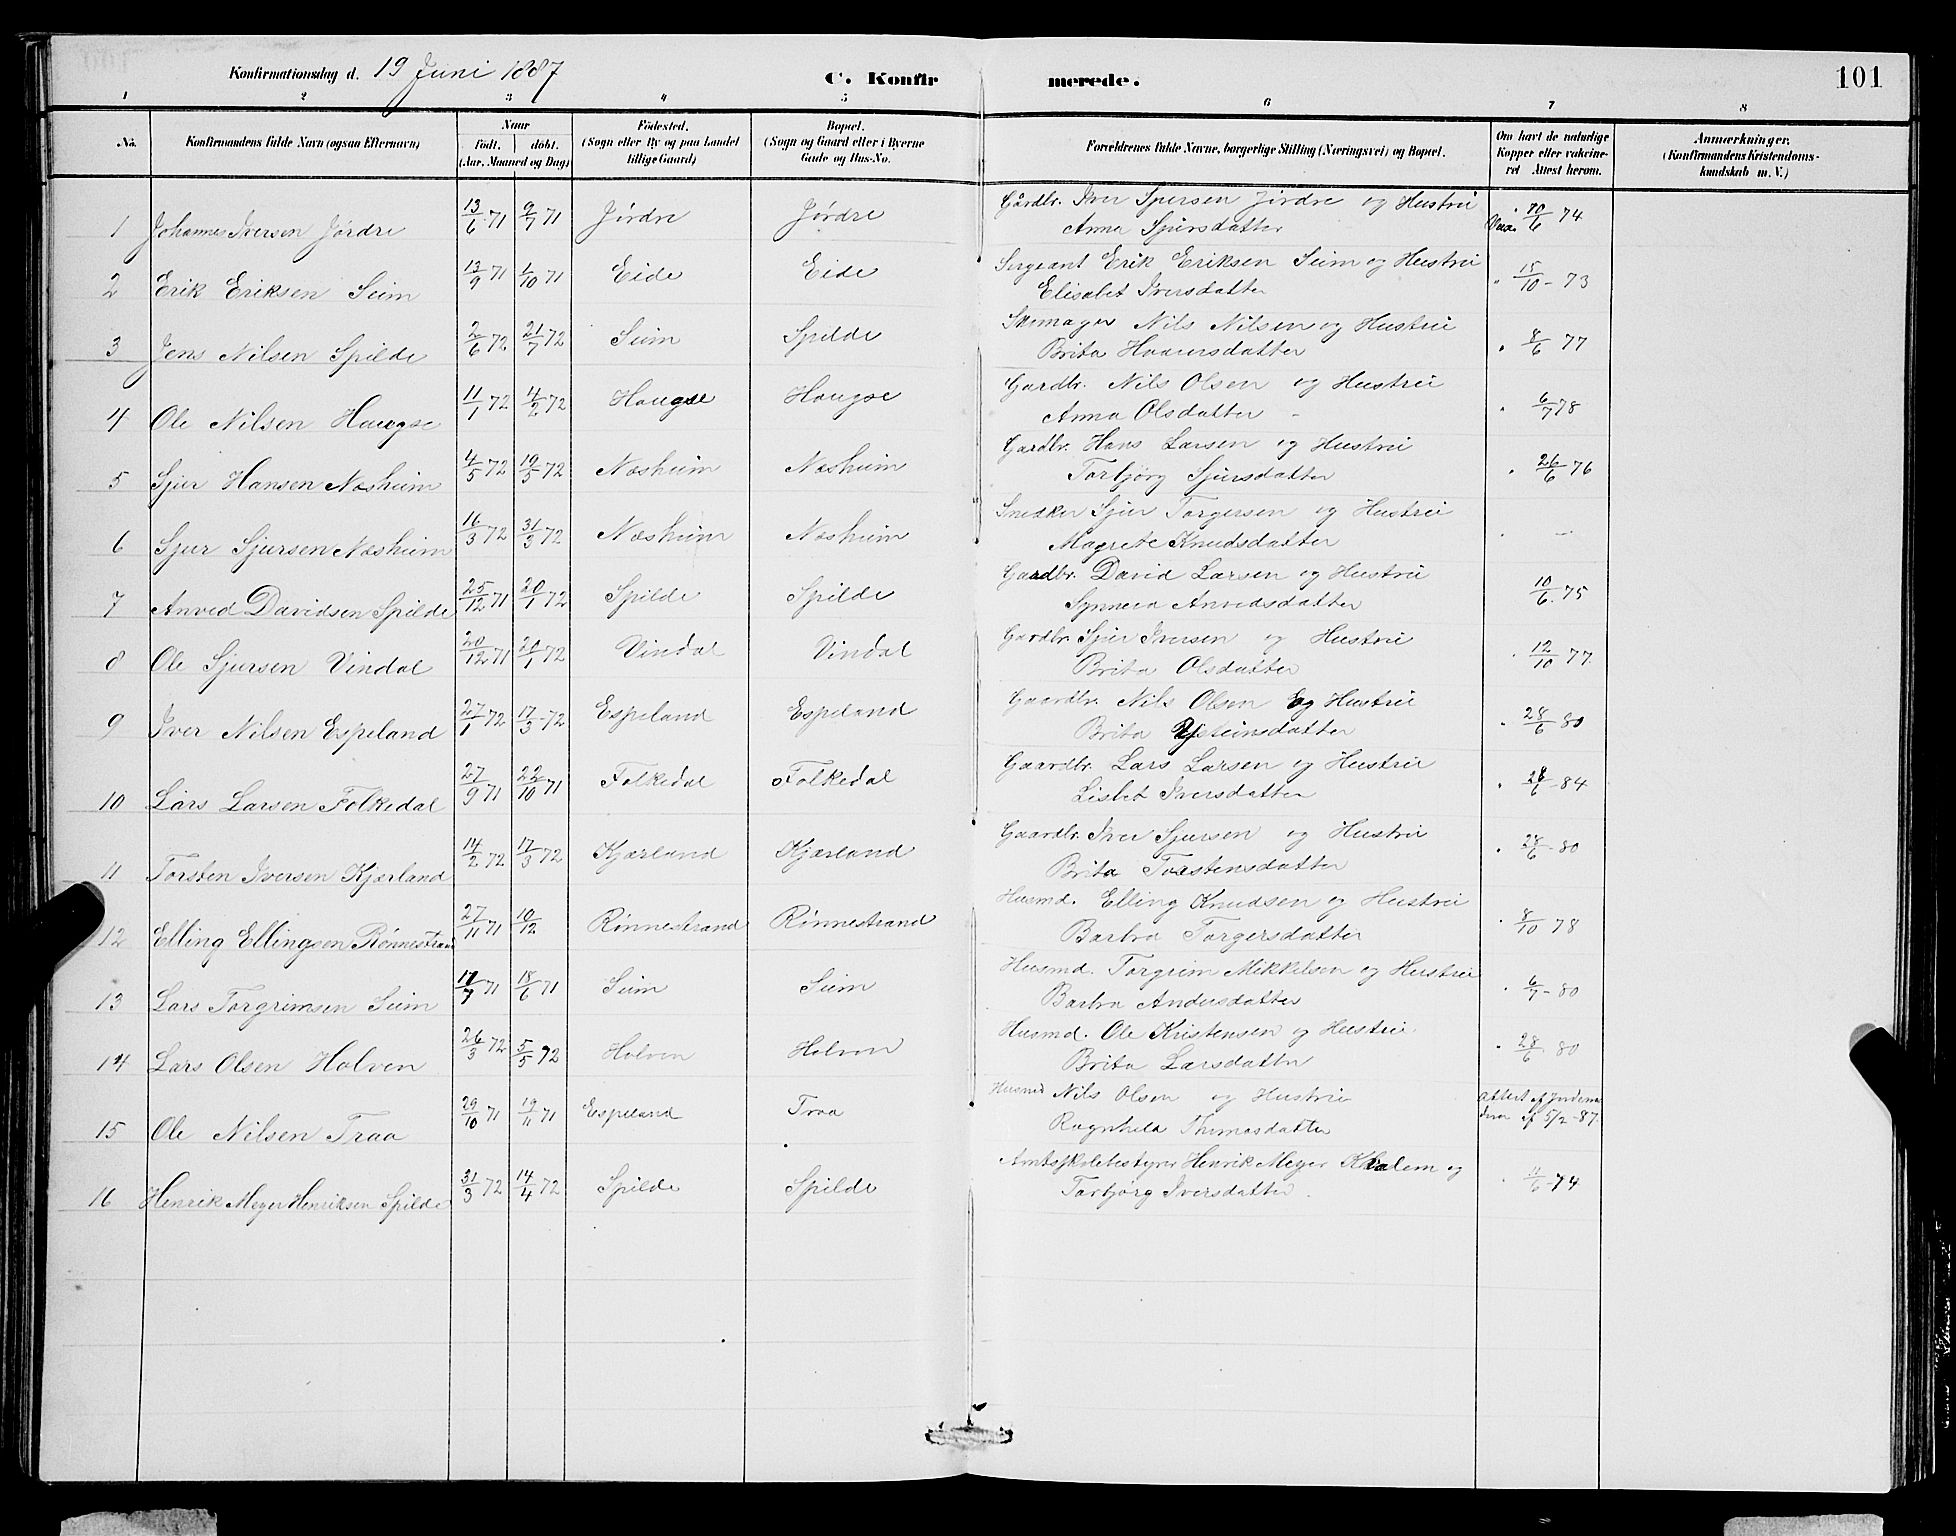 Konfirmationsdag d. 19 Juni 1887 C. Konfirmerede. 101
1 2 3 4 5 6 7 8
No. Konfirmandens fulde Navn (ogsaa Efternavn) Naar født. døbt. (Aar, Maaned og Dag) Fødested. (Sogn eller By og paa Landet tillige Gaard) Bopæl. (Sogn og Gaard eller i Byerne Gade og Hus-No. Forældrenes fulde Navne, borgerlige Stilling (Næringsvei) og Bopæl. Om havt de naturlige Kopper eller vakcineret Attest herom. Anmærkninger. (Konfirmandens Kristendomskundskab m. V.)
1 Johannes Iversen Jørdre 13/6 71 9/7 71 Jørdre Jørdre Gårdbr. Iver Sjursen Jørdre og Hustru 74
Anna Sjursdatter
2 Erik Eriksen Seim 13/9 71 1/10 71 Eide Eide Sergeant Erik Eriksen Seim og Hustru " 15/10 - 73
Elisabet Iversdatter
3 Jens Nilsen Spilde 2/6 72 21/7 72 Seim Spilde Skomager Nils Nilsen og Hustru " 8/6 77
Brita
4 Ole Nilsen Haugse 11/1 72 4/2 72 Haugse Haugse Gardbr. Nils Olsen og Hustru " 6/7 78
Anna Olsdatter -
5 Sjur Hansen Næsheim 4/5 72 19/5 72 Næsheim Næsheim Gardbr. Hans Larsen og Hustru " 26/6 76
Torbjørg Sjursdatter
6 Sjur Sjursen Næsheim 16/3 72 31/3 72 Næsheim Næsheim Snedker Sjur Torgersen og Hustru " —
Magrete Knudsdatter
7 Anved Davidsen Spilde 25/12 71 20/1 72 Spilde Spilde Gaardbr. David Larsen og Hustru 10/6. 75
Synneva Anvedsdatter
8 Ole Sjursen Vindal 20/12 71 /1 72 Vindal Vindal Gardbr. Sjur Iversen og Hustru " 12/10 77.
Brita Olsdatter
9 Iver Nilsen Espeland 27/1 72 17/3 72 Espeland Espeland Gaardbr. Nils Olsen og Hustru " 28/6 80
Brita Ysteinsdatter
10 Lars Larsen Folkedal 27/9 71 22/10 71 Folkedal Folkedal Gaardbr. Lars Larsen og Hustru " 28/6 84
Lisbet Iversdatter
11 Torsten Iversen Kjærland 14/2 72 17/3 72 Kjærland Kjærland Gaardbr. Iver Sjursen og Hustru " 28/6 - 80
Brita Torstensdatter
12 Elling Ellingsen Rønnestrand 27/11 71 10/12 Rønnestrand Rønnestrand Husmd. Elling Knudsen og Hustru " 8/10 78
Barbra Torgersdatter
13 Lars Torgrimsen Seim 71 18/6 71 Seim Seim Husmd. Torgrim Mikkelsen og Hustru " 6/7 - 80
Barbra Andersdatter
14 Lars Olsen Holven 26/3 72 5/5 72 Holven Holven Husmd. Ole Kristensen og Hustru " 28/6 80
Brita Larsdatter
15 Ole Nilsen Traa 29/10 71 19/11 71 Espeland Traa Husmd Nils Olsen og Hustru Attest af af 5/2 - 87.
Ragnhild Thomasdatter
16 Henrik Meyer Henriksen Spilde 31/3 72 14/4 72 Spilde Spilde Amtsskolebestyrer Henrik Meyer og " 11/6 - 74
Torbjørg Iversdatter.